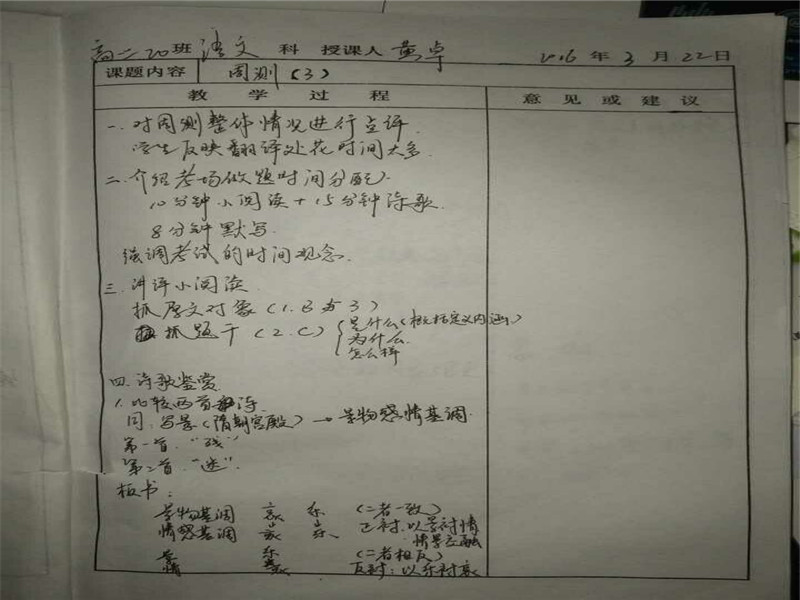 高二20班 语文 科 授课人 黄卓 2016年3月22日
课题内容 周测(3)
教学过程 意见或建议
一.对周测整体情况进行点评.
学生反映翻译处花时间太多.
二.介绍考场做题时间分配.
10分钟小阅读+15分钟诗歌.
8分钟默写.
强调考试的时间观念.
三.讲评小阅读
抓原文对象(1.B与3)
抓题干(2.C) 是什么(概括定义内涵)
为什么.
怎么样
四.诗歌鉴赏.
1.比较两首诗.
同:写景(隋朝宫殿)→景物感情基调.
第一首."残"
第二首."迷".
板书:
景物基调 哀 乐 (二者一致)
情感基调 哀 乐 正衬:以景衬情
情景交融
景 乐 (二者相反)
情 哀 反衬:以乐衬哀